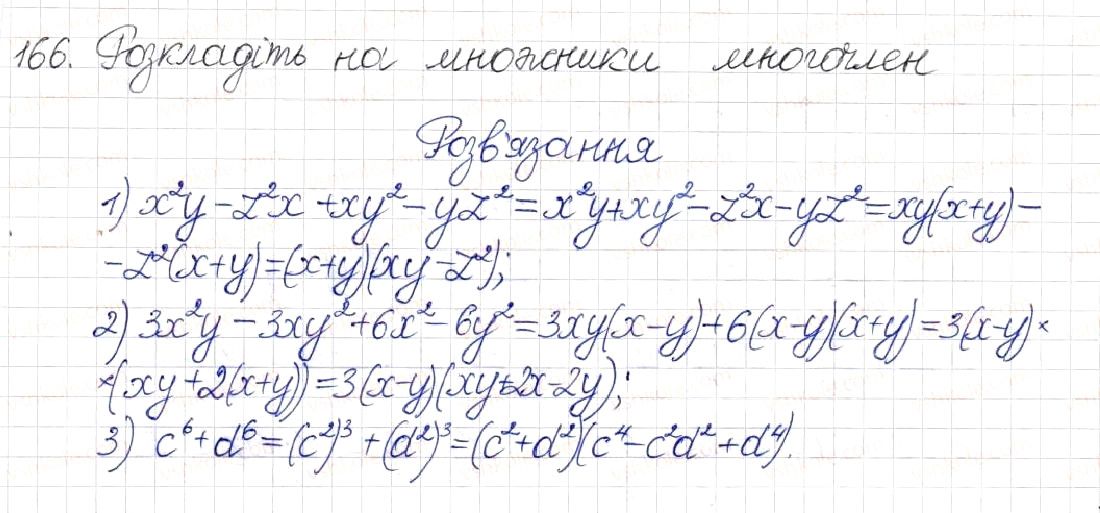 166. Розкладіть на множники многочлен
Розв'язання
1) x²y - z²x + xy² - yz² = x²y + xy² - z²x - yz² = xy(x+y) -
- z²(x+y) = (x+y)(xy - z²);
2) 3x²y - 3xy² + 6x² - 6y² = 3xy(x-y) + 6(x-y)(x+y) = 3(x-y) ×
×(xy + 2(x+y)) = 3(x-y)(xy+2x-2y);
3) c⁶ + d⁶ = (c²)³ + (d²)³ = (c² + d²)(c⁴ - c²d² + d⁴).